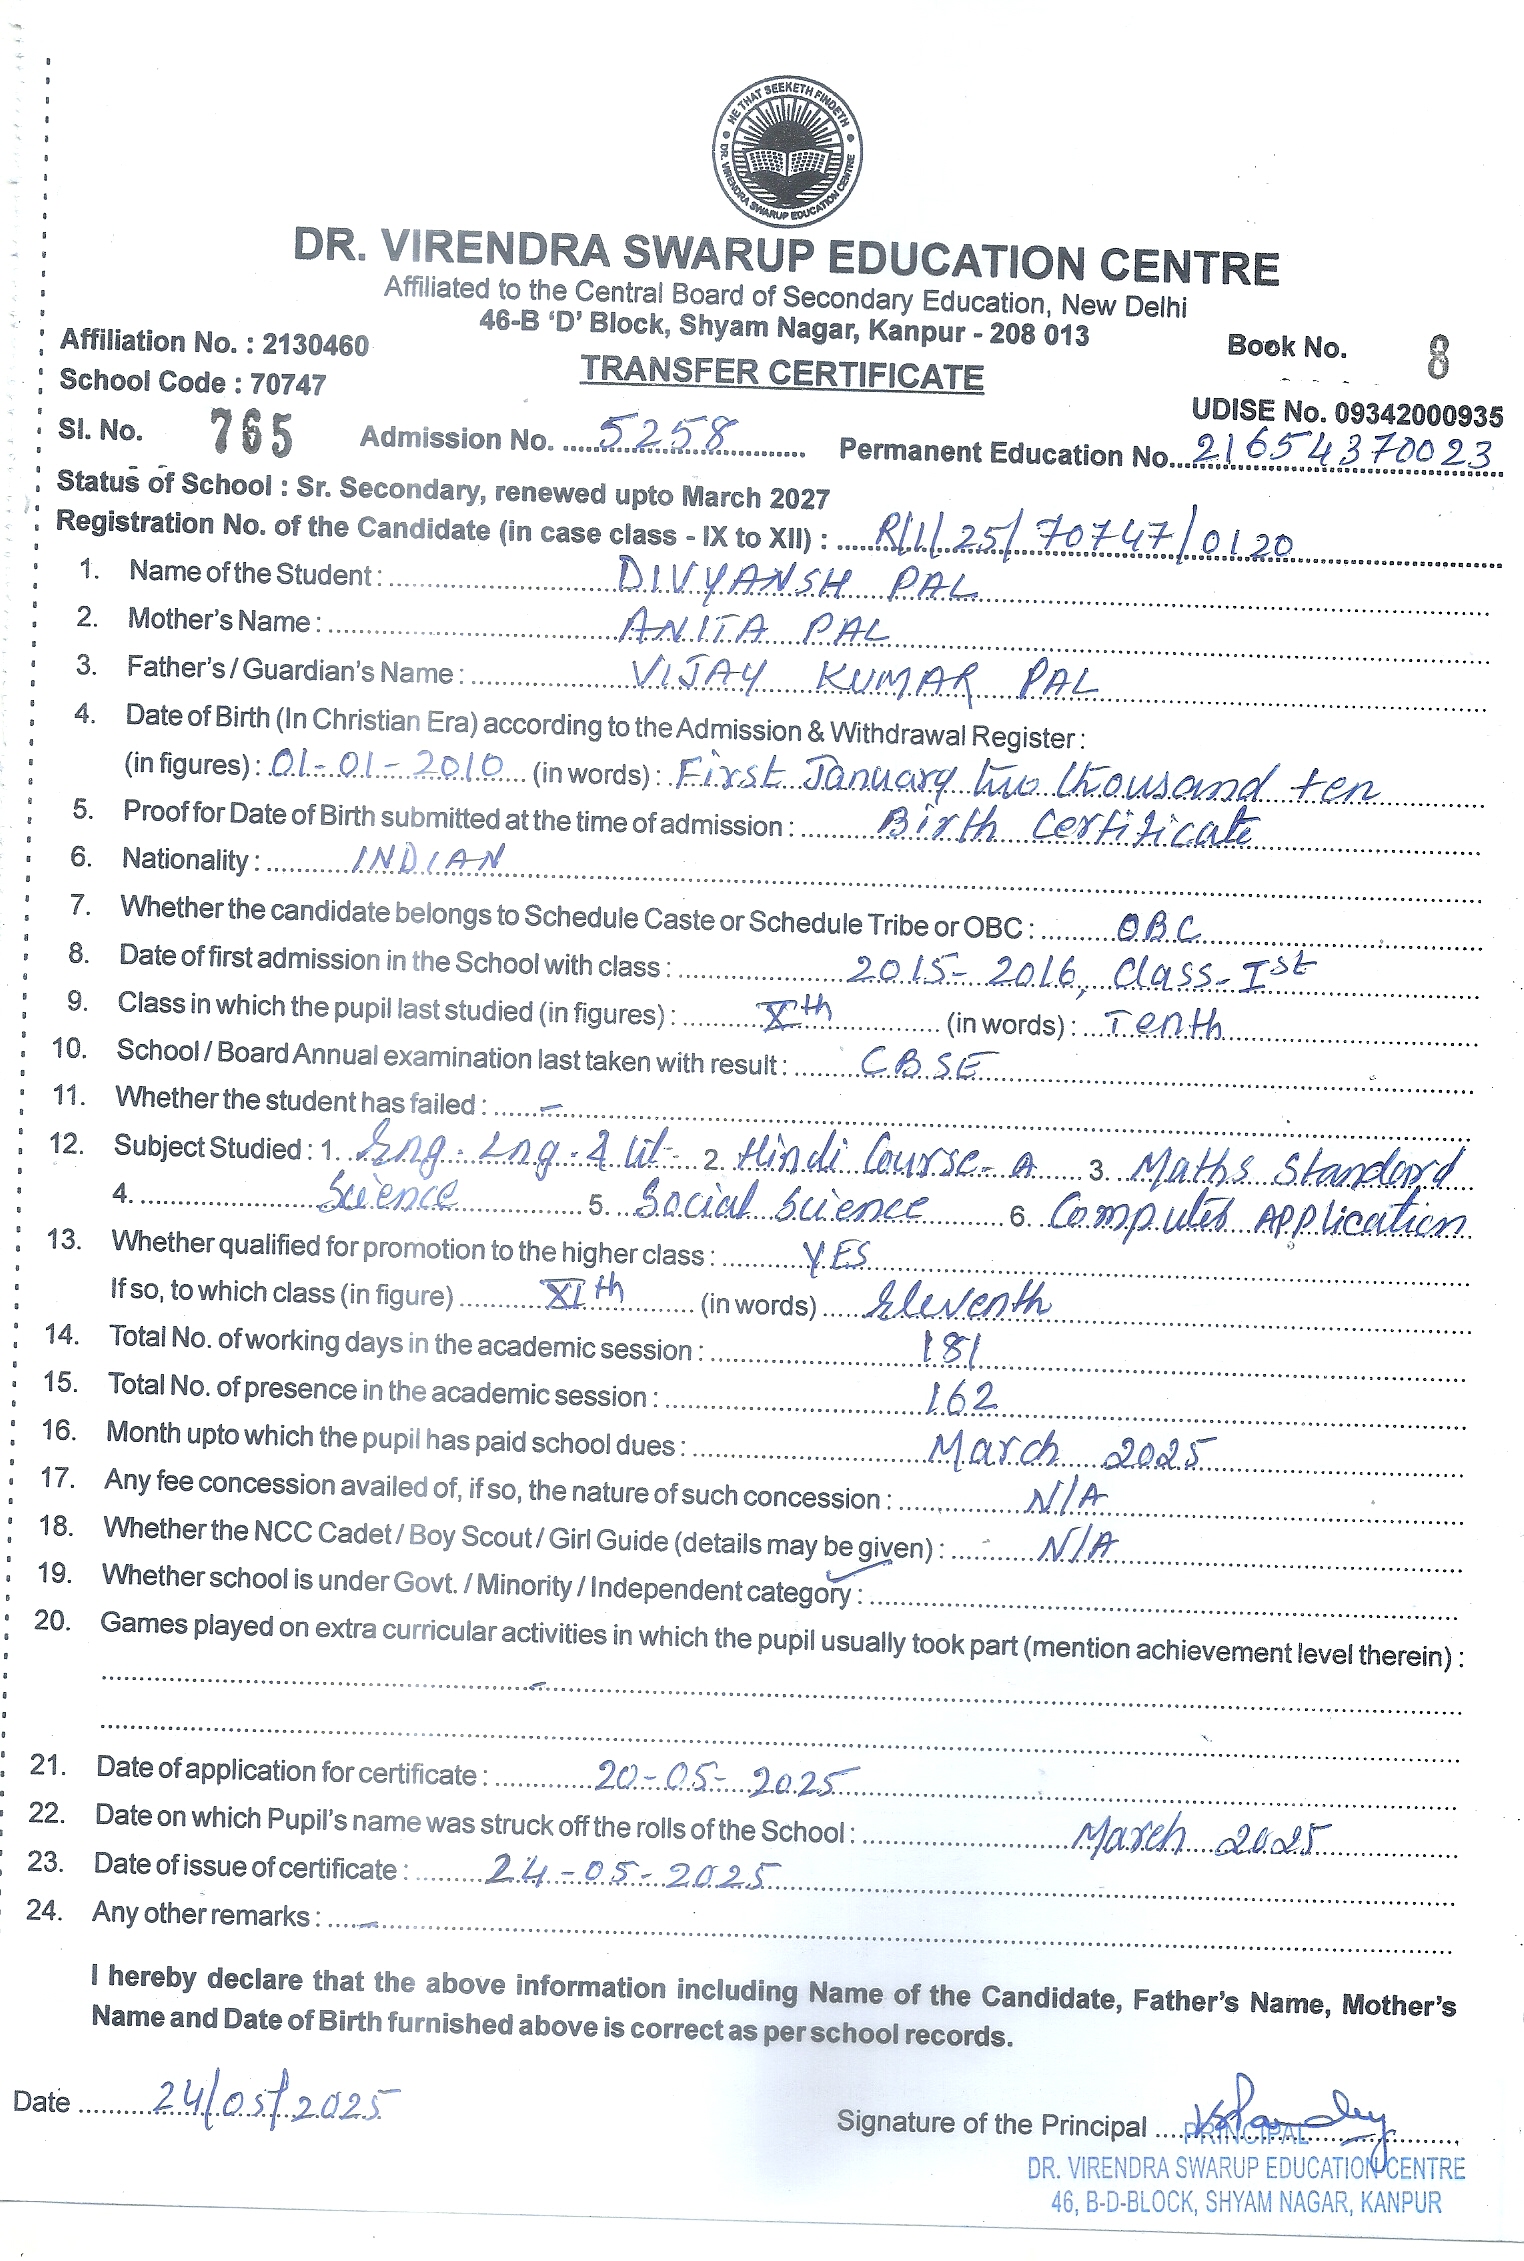 HE THAT SEEKETH FINDETH
DR. VIRENDRA SWARUP EDUCATION CENTRE
DR. VIRENDRA SWARUP EDUCATION CENTRE
Affiliated to the Central Board of Secondary Education, New Delhi
46-B ‘D’ Block, Shyam Nagar, Kanpur - 208 013
Affiliation No. : 2130460 Book No. 8
School Code : 70747 TRANSFER CERTIFICATE
UDISE No. 09342000935
Sl. No. 765 Admission No. 5258 Permanent Education No. 21654370023
Status of School : Sr. Secondary, renewed upto March 2027
Registration No. of the Candidate (in case class - IX to XII) : R/1/25/70747/0120
1. Name of the Student : DIVYANSH PAL
2. Mother's Name : ANITA PAL
3. Father's / Guardian's Name : VIJAY KUMAR PAL
4. Date of Birth (In Christian Era) according to the Admission & Withdrawal Register :
(in figures) : 01-01-2010 (in words) : First January two thousand ten
5. Proof for Date of Birth submitted at the time of admission : Birth Certificate
6. Nationality : INDIAN
7. Whether the candidate belongs to Schedule Caste or Schedule Tribe or OBC : OBC
8. Date of first admission in the School with class : 2015-2016, Class-Ist
9. Class in which the pupil last studied (in figures) : Xth (in words) : Tenth
10. School / Board Annual examination last taken with result : CBSE
11. Whether the student has failed : -
12. Subject Studied : 1. Eng. Lng. & Lit. 2. Hindi Course-A 3. Maths Standard
4. Science 5. Social Science 6. Computer Application
13. Whether qualified for promotion to the higher class : YES
If so, to which class (in figure) XIth (in words) Eleventh
14. Total No. of working days in the academic session : 181
15. Total No. of presence in the academic session : 162
16. Month upto which the pupil has paid school dues : March 2025
17. Any fee concession availed of, if so, the nature of such concession : N/A
18. Whether the NCC Cadet / Boy Scout / Girl Guide (details may be given) : N/A
19. Whether school is under Govt. / Minority / Independent category :
20. Games played on extra curricular activities in which the pupil usually took part (mention achievement level therein) :
-
21. Date of application for certificate : 20-05-2025
22. Date on which Pupil's name was struck off the rolls of the School : March 2025
23. Date of issue of certificate : 24-05-2025
24. Any other remarks : -
I hereby declare that the above information including Name of the Candidate, Father's Name, Mother's
Name and Date of Birth furnished above is correct as per school records.
Date 24/05/2025
Signature of the Principal
PRINCIPAL
DR. VIRENDRA SWARUP EDUCATION CENTRE
46, B-D-BLOCK, SHYAM NAGAR, KANPUR